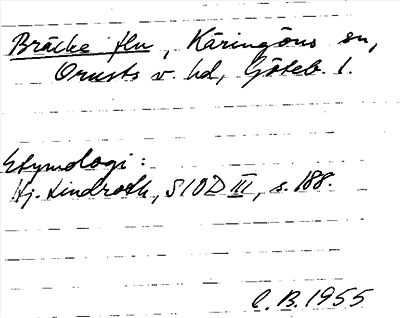 Bräcke flu, Käringöns sn,
Orusts v. hd, Göteb. l.
Etymologi:
Hj. Lindroth, SIOD III, s. 188.
C. B. 1955